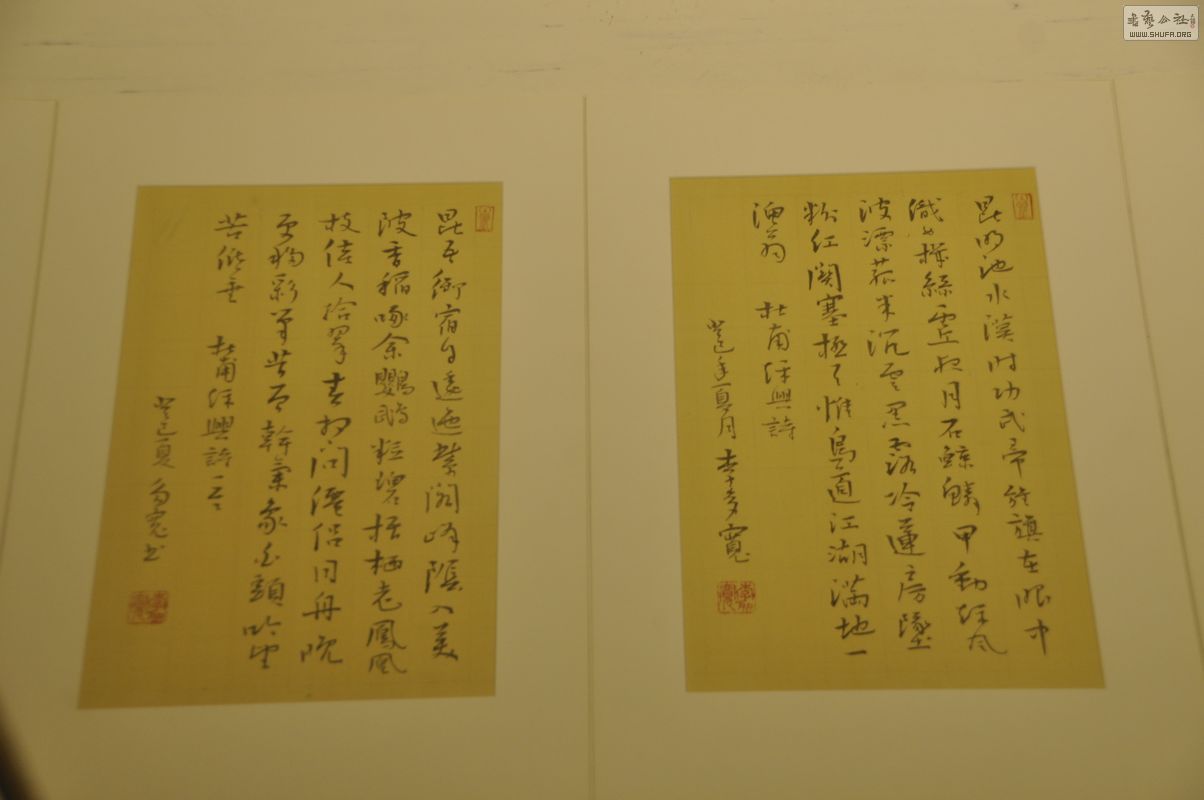 昆明池水漢時功武帝旌旗在眼中
織女機絲虛夜月石鯨鱗甲動秋風
波漂菰米沉雲黑露冷蓮房墜
粉紅關塞極天惟鳥道江湖滿地一
漁翁 杜甫秋興詩
癸巳年夏月 李 寬
昆吾御宿自逶迤紫閣峰陰入美
陂香稻啄余鸚鵡粒碧梧栖老鳳凰
枝佳人拾翠春相問僊侶同舟晚
更移彩筆昔曾幹氣象白頭吟望
苦低垂 杜甫秋興詩
癸巳夏 寬書
WWW.SHUFA.ORG